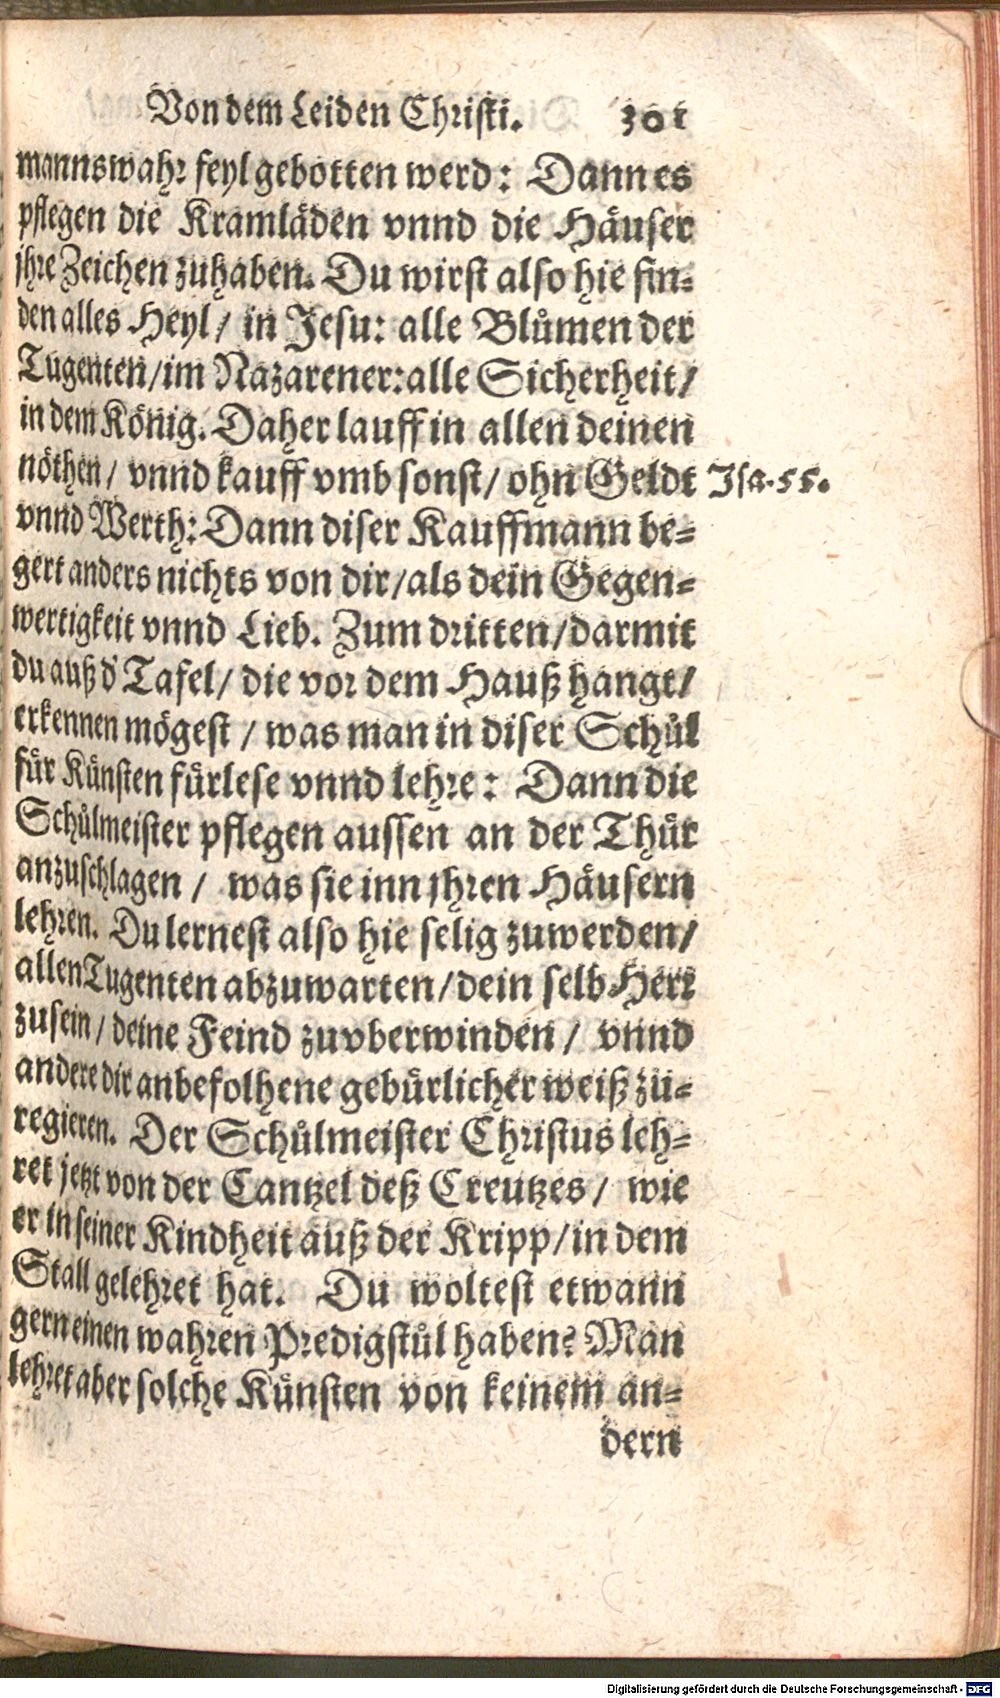 Von dem Leiden Christi. 301
mannswahr feyl gebotten werd: Dann es
pflegen die Kramläden vnnd die Häuser
jhre Zeichen zuhaben. Du wirst also hie fin-
den alles Heyl / in Jesu: alle Blůmen der
Tugenten / im Nazarener: alle Sicherheit /
in dem König. Daher lauff in allen deinen
nöthen / vnnd kauff vmb sonst / ohn Geldt Isa. 55.
vnnd Werth: Dann diser Kauffmann be-
gert anders nichts von dir / als dein Gegen-
wertigkeit vnnd Lieb. Zum dritten / darmit
du auß d' Tafel / die vor dem Hauß hangt /
erkennen mögest / was man in diser Schůl
für Künsten fürlese vnnd lehre: Dann die
Schůlmeister pflegen aussen an der Thür
anzuschlagen / was sie inn jhren Häusern
lehren. Du lernest also hie selig zuwerden /
allen Tugenten abzuwarten / dein selb Herr
zusein / deine Feind zuvberwinden / vnnd
andere dir anbefolhene gebürlicher weiß zu-
regieren. Der Schůlmeister Christus leh-
ret jetzt von der Cantzel deß Creutzes / wie
er in seiner Kindheit auß der Kripp / in dem
Stall gelehret hat. Du woltest etwann
gern einen wahren Predigstůl haben? Man
lehret aber solche Künsten von keinem an-
dern
Digitalisierung gefördert durch die Deutsche Forschungsgemeinschaft - DFG